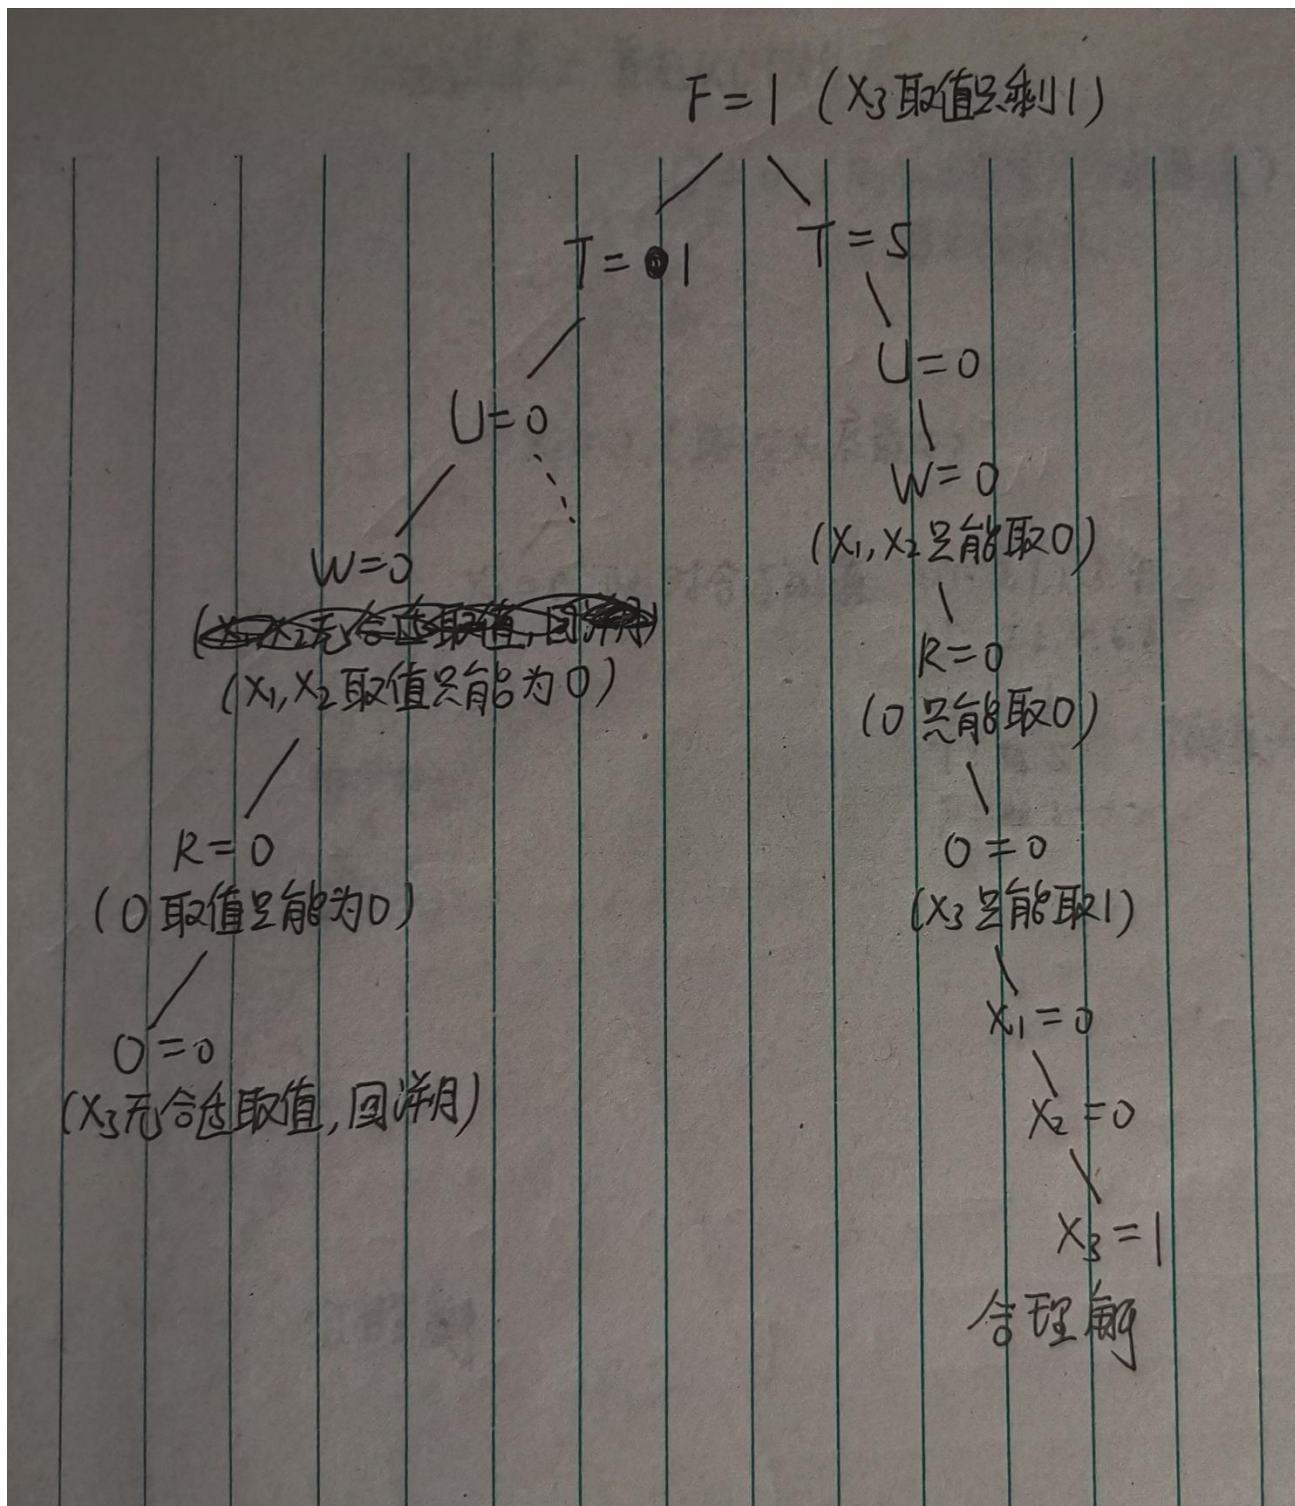 F = 1 (X₃取值只剩1)
T = 1
T = 5
U = 0
U = 0
W = 0
W = 0
(X₁, X₂只能取0)
(X₁, X₂无合适取值, 回溯)
(X₁, X₂取值只能为0)
R = 0
(O只能取0)
R = 0
(O取值只能为0)
O = 0
(X₃只能取1)
O = 0
(X₃无合适取值, 回溯)
X₁ = 0
X₂ = 0
X₃ = 1
合理解